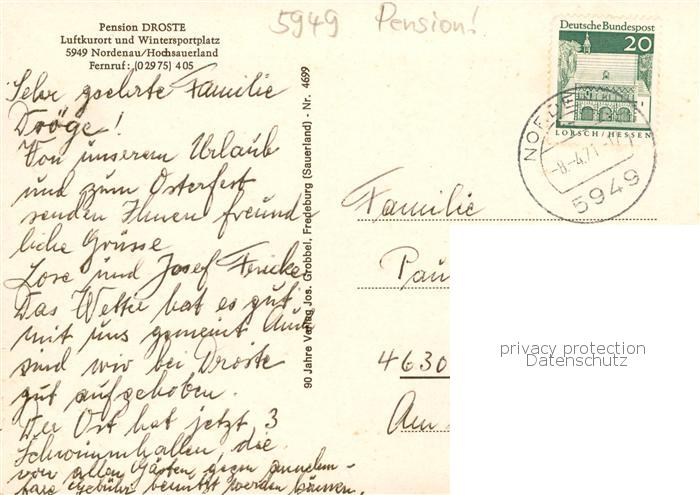 Pension DROSTE
Luftkurort und Wintersportplatz
5949 Nordenau/Hochsauerland
Fernruf: (0 29 75) 4 05
5949 Pension!
Deutsche Bundespost
20
LORSCH/HESSEN
-8.-4.71
5949
Sehr geehrte Familie
Dröge!
Von unserem Urlaub
und zum Osterfest
senden Ihnen freund
liche Grüsse
Lore und Josef
Das Wetter hat es gut
mit uns gemeint
sind wir bei Droste
gut aufgehoben.
Der Ort hat jetzt 3
Schwimmhallen, die
von allen Gästen gegen annehm-
bare Gebühr benutzt werden können.
90 Jahre Verlag Jos. Grobbel, Fredeburg (Sauerland) - Nr. 4699
Familie
Pau
4630
Am
privacy protection
Datenschutz